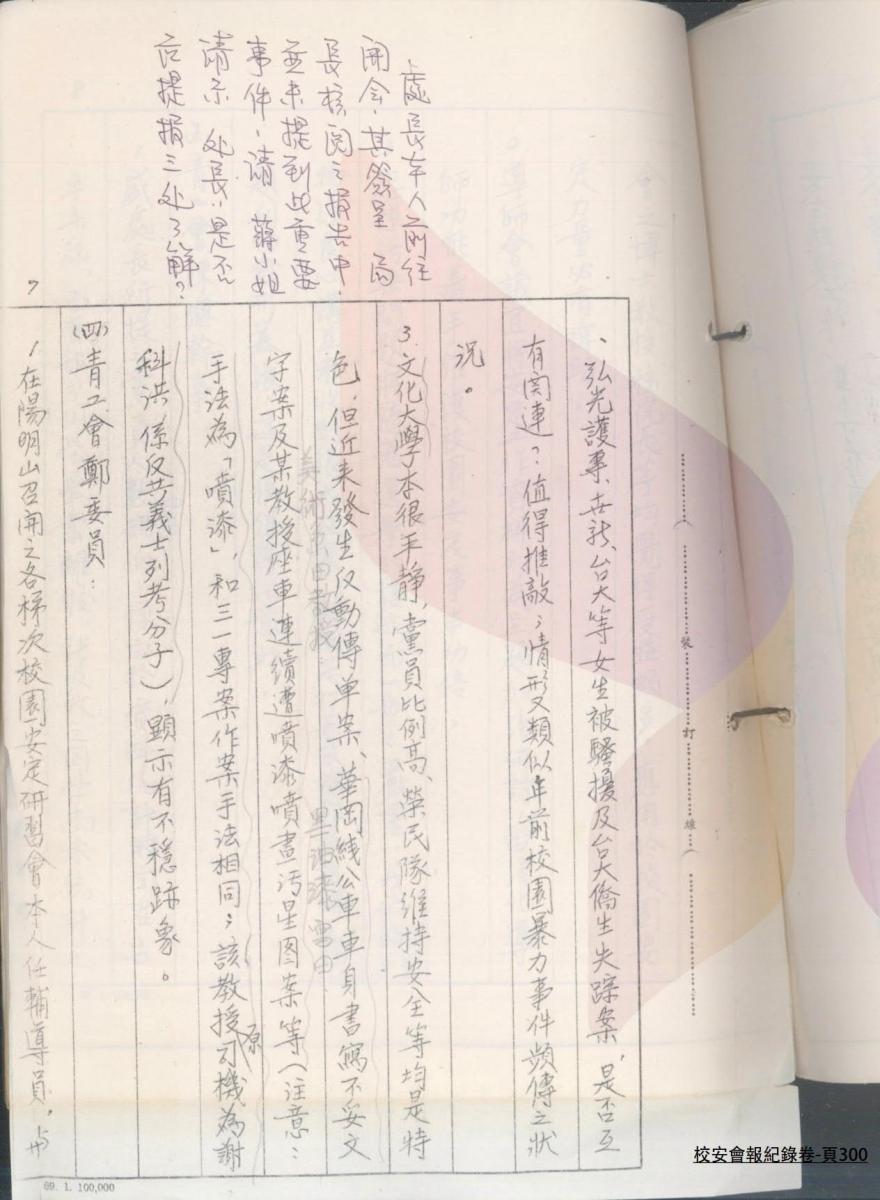 處長本人前往
開會，其簽呈 局
長核閱之報告中，
並未提到此重要
事件，請 蔣小姐
請示 处长，是否
應提報三处了解？
、弘光護專、世新、台大等女生被騷擾及台大僑生失踪案，是否互
有関連？值得推敲；情形又類似年前校園暴力事件頻傳之狀
況。
3.文化大學本很平静，黨員比例高、榮民隊維持安全等均是特
色，但近来發生反動傳单案、華岡綫公車車身書寫不妥文
美術系田教授
黑油漆 雪田
字案及某教授座車連續遭噴漆噴畫污星图案等（注意：
手法為「噴漆」，和三一專案作案手法相同；該教授原司機為謝
科洪，係反共義士列考分子），顯示有不穩跡象。
(四)青工會鄭委員：
1.在陽明山召開之各梯次校園安定研習會本人任輔導員，与
7
裝
訂
線
69. 1. 100,000
校安會報紀錄卷-頁300